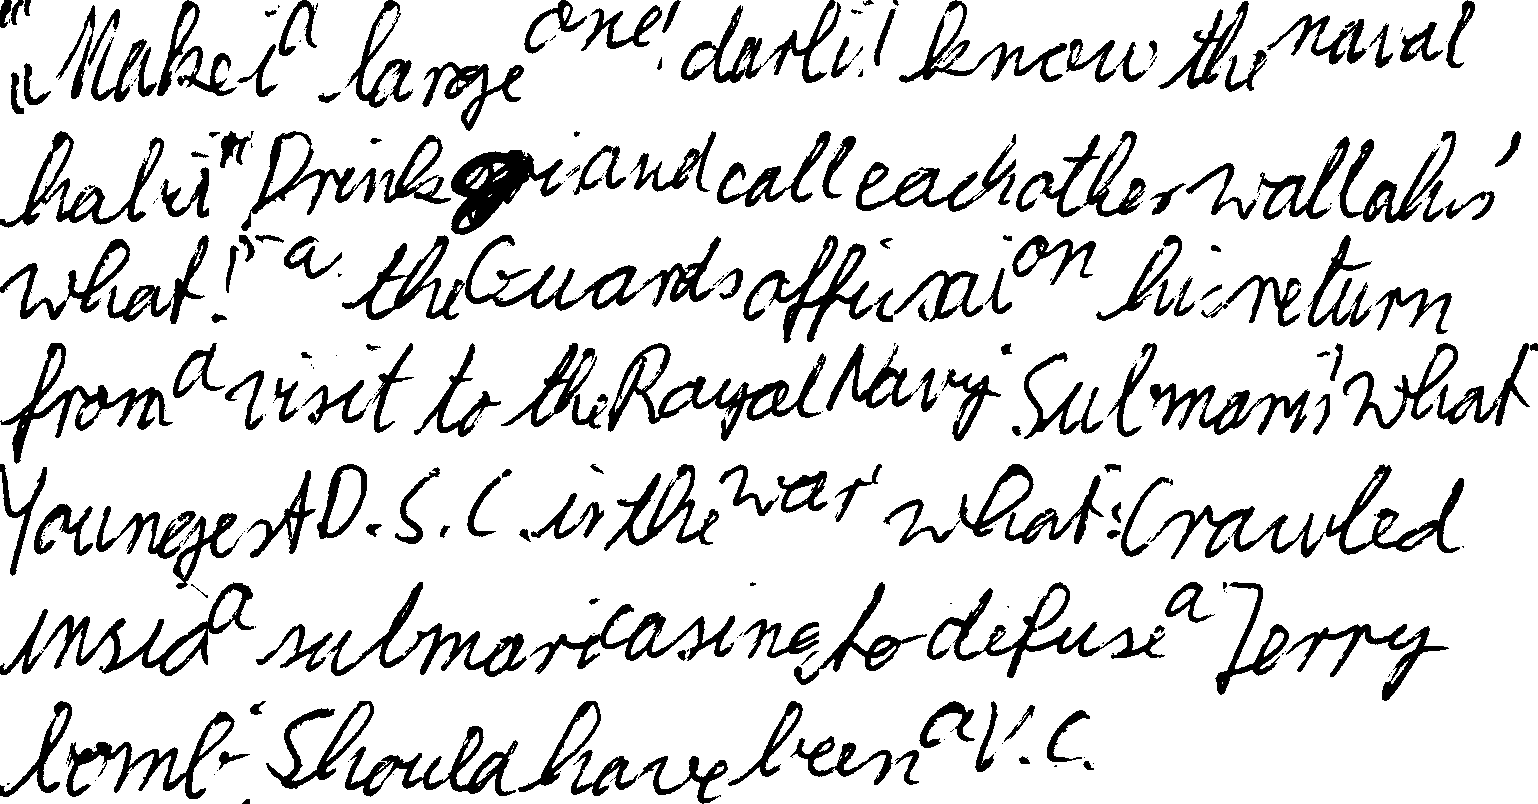 "Make it a large one, darli! I know the naval
habit" Drink gin and call each other wallahs'
what!" a the Guards officer ai on his return
from a visit to the Royal Navy. Submaris' What
Youngest D.S.C. in the war' what: Crawled
inside a submari casing to defuse a Jerry
bomb. Should have been a V.C.